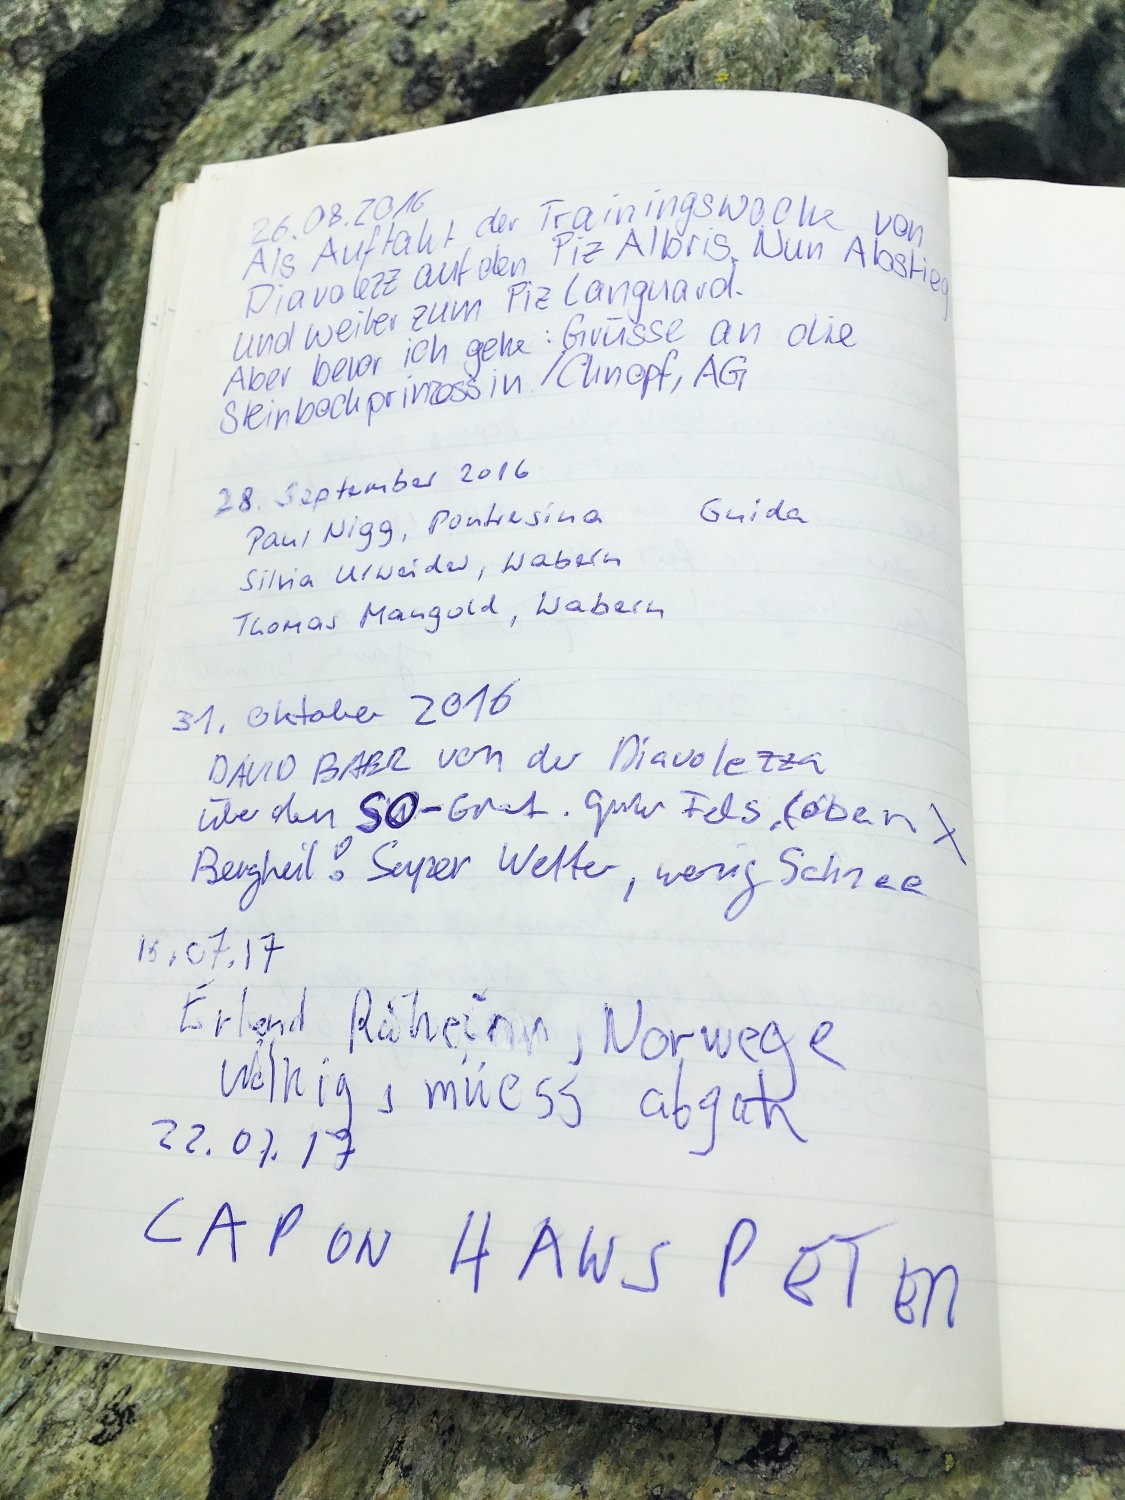 26.08.2016
Als Auftakt der Trainingswoche von
Diavolezz auf den Piz Albris. Nun Abstieg
und weiter zum Piz Languard.
Aber bevor ich gehe: Grüsse an die
Steinbockprinzessin / Chnopf, AG
28. September 2016
Paul Nigg, Pontresina Guida
Silvia Urweider, Wabern
Thomas Mangold, Wabern
31. Oktober 2016
DAVID BAER von der Diavolezza
über den SO-Grat. guter Fels, (oben)
Bergheil! Super Wetter, wenig Schnee
.07.17
Erlend Norwege
wolkig, müess abgah
22.07.17
CAPON HANS PETER